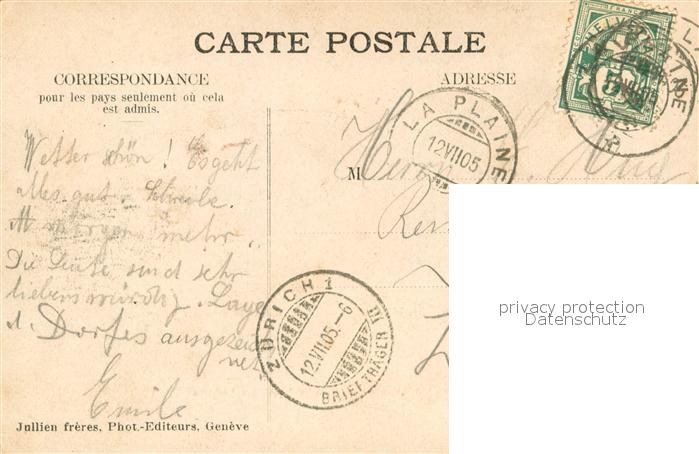 CARTE POSTALE
CORRESPONDANCE
pour les pays seulement où cela
est admis.
ADRESSE
Wetter schön! Es geht
alles gut. Schreibe
morgen mehr.
Die Leute sind sehr
liebenswürdig. Lage
d. Dorfes ausgezeich
net.
Emile
Jullien frères, Phot.-Editeurs, Genève
M
Herrn Hug
LA PLAINE
12 VII 05
ZÜRICH 1
12.VII.05.-6
BRIEFTRÄGER
HELVETIA
5
privacy protection
Datenschutz